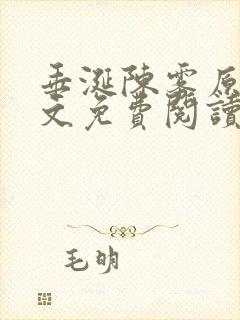 垂涎陳雾原
文免費閱讀
毛明